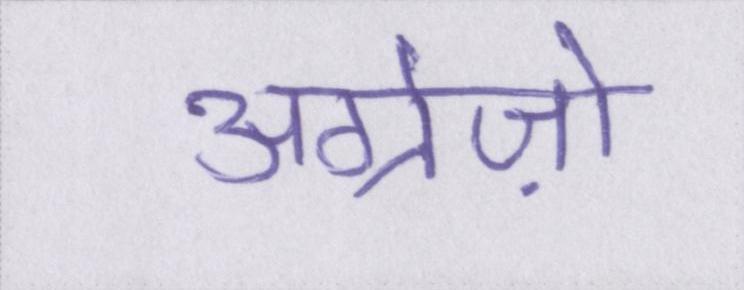 अग्रेज़ो